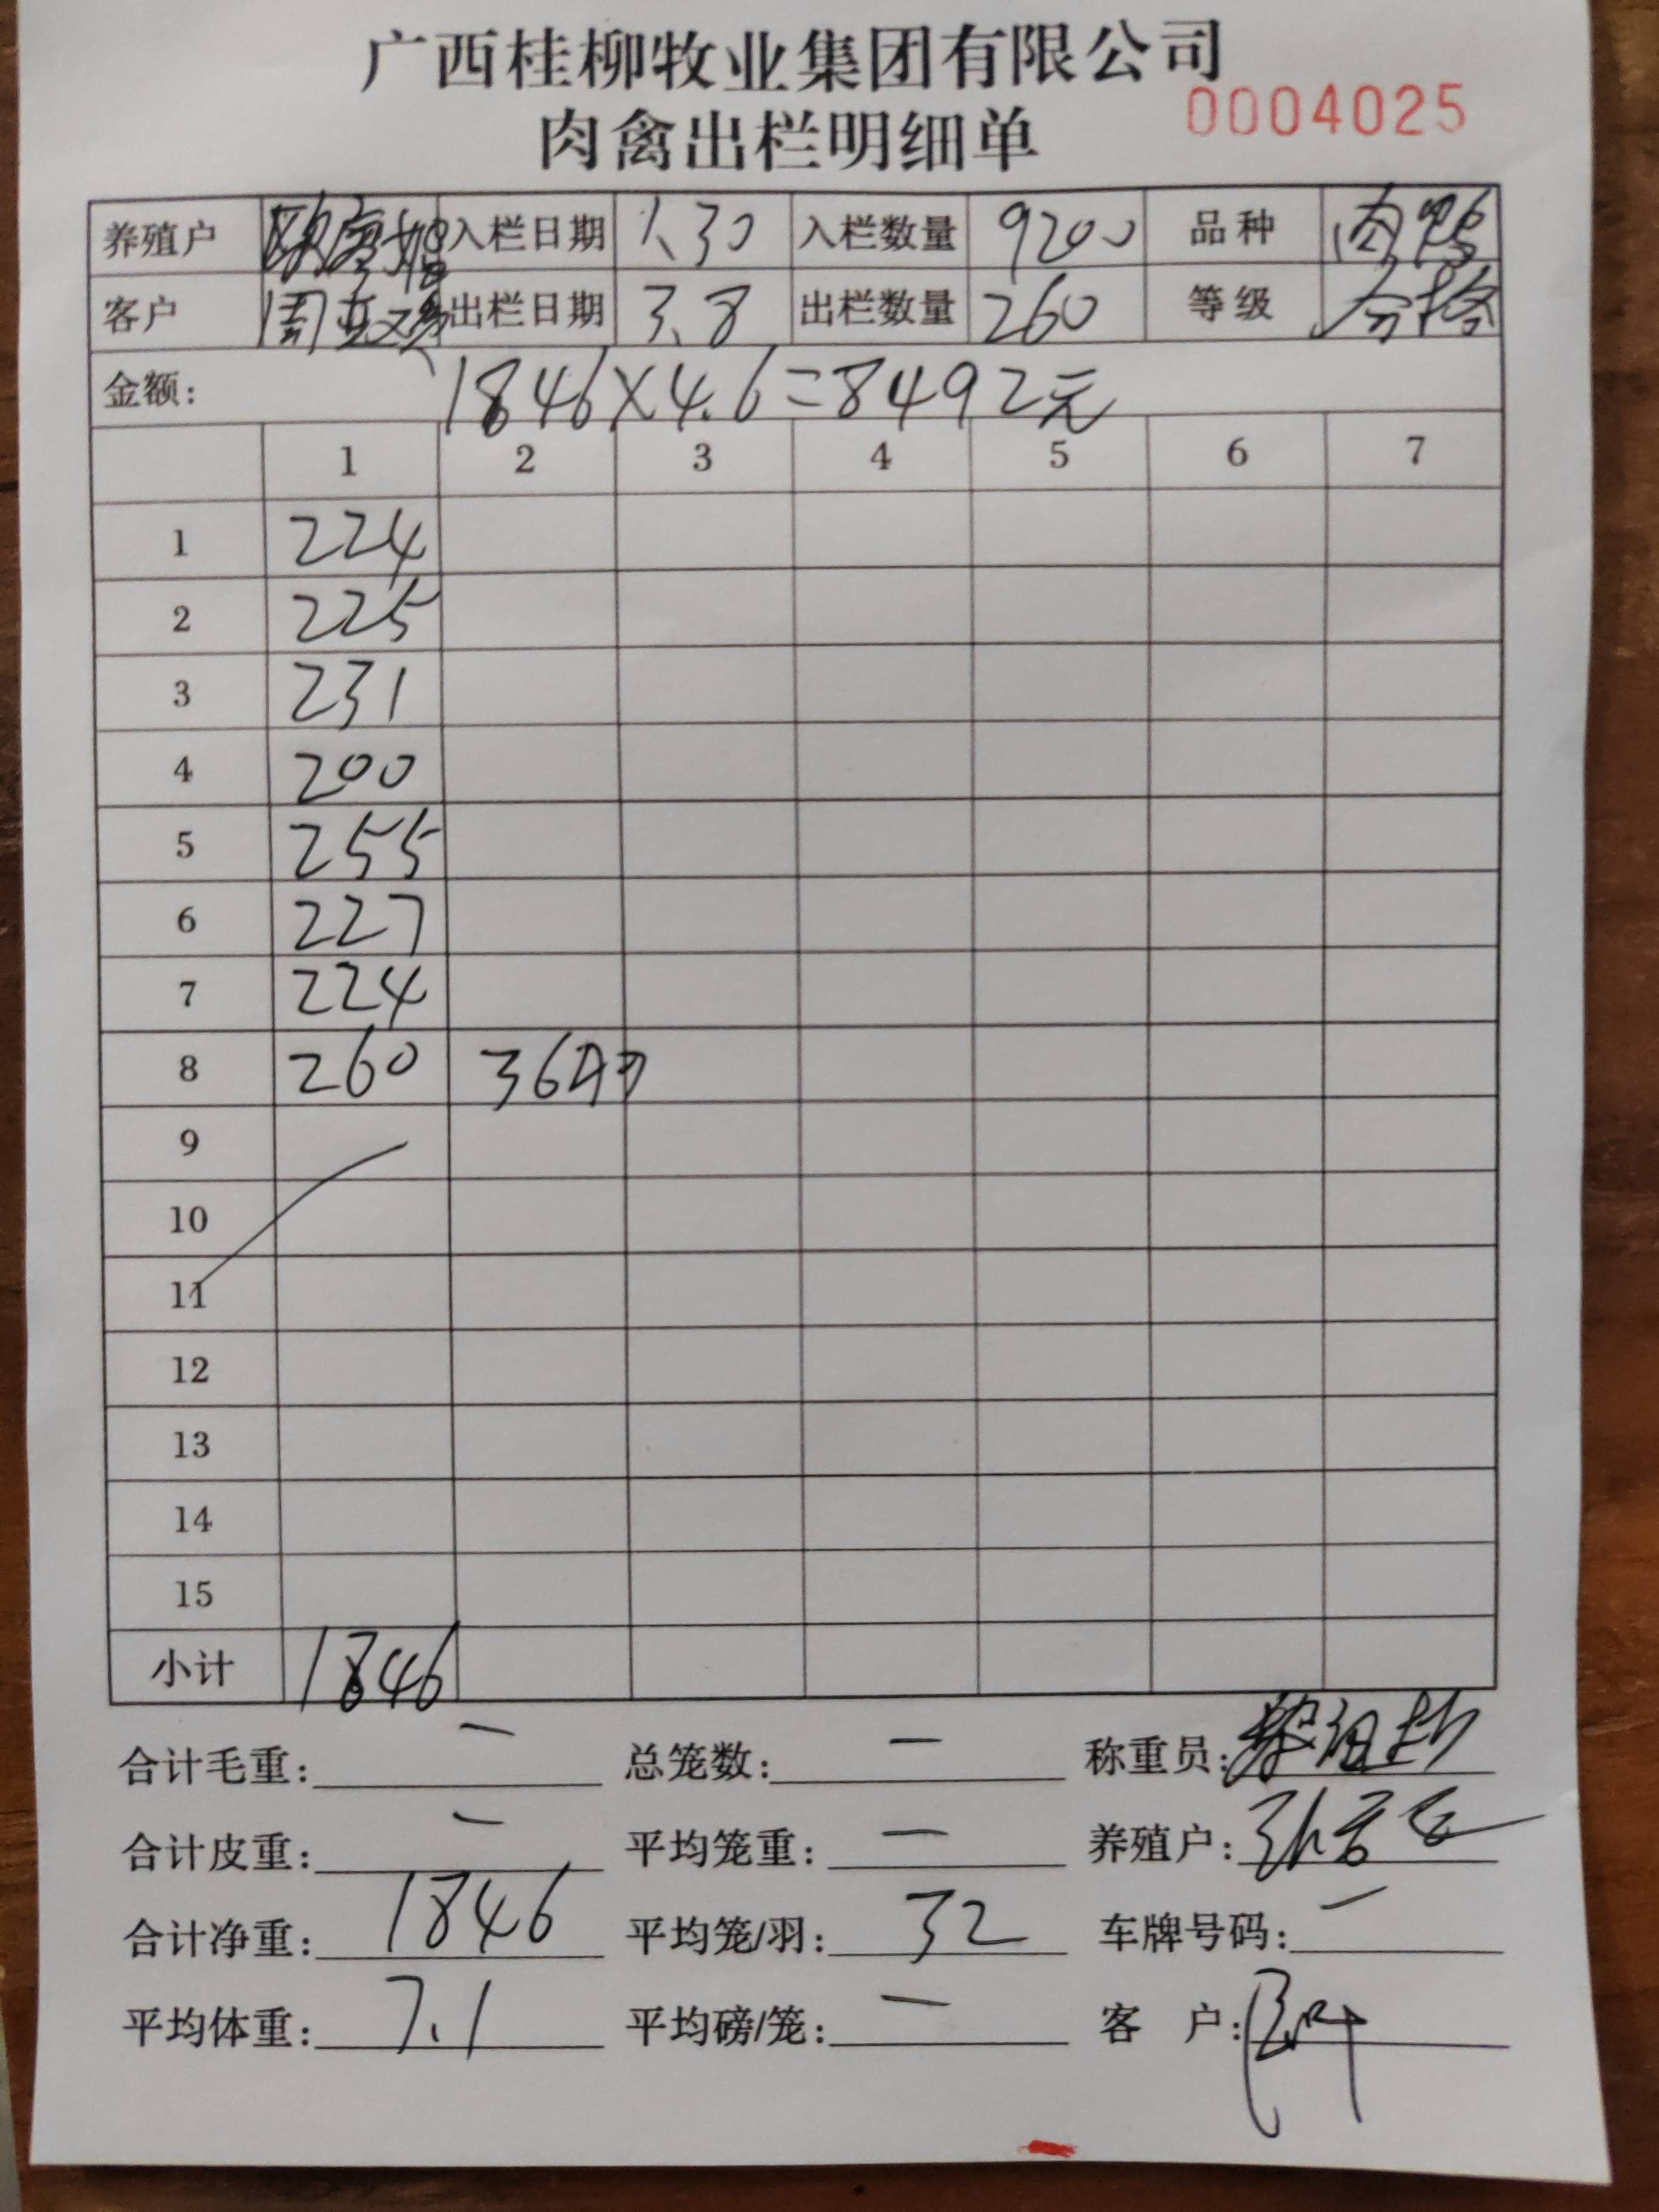 广西桂柳牧业集团有限公司
肉禽出栏明细单 0004025
养殖户 入栏日期 1.30 入栏数量 9200 品种 肉鸭
客户 出栏日期 3.8 出栏数量 260 等级 合格
金额: 1846×4.6=8492元
1 2 3 4 5 6 7
1 224
2 225
3 231
4 200
5 255
6 227
7 224
8 260 36
9
10
11
12
13
14
15
小计 1846
合计毛重: 一 总笼数: 一 称重员:
合计皮重: 一 平均笼重: 一 养殖户:
合计净重: 1846 平均笼/羽: 32 车牌号码: 一
平均体重: 7.1 平均磅/笼: 一 客 户: